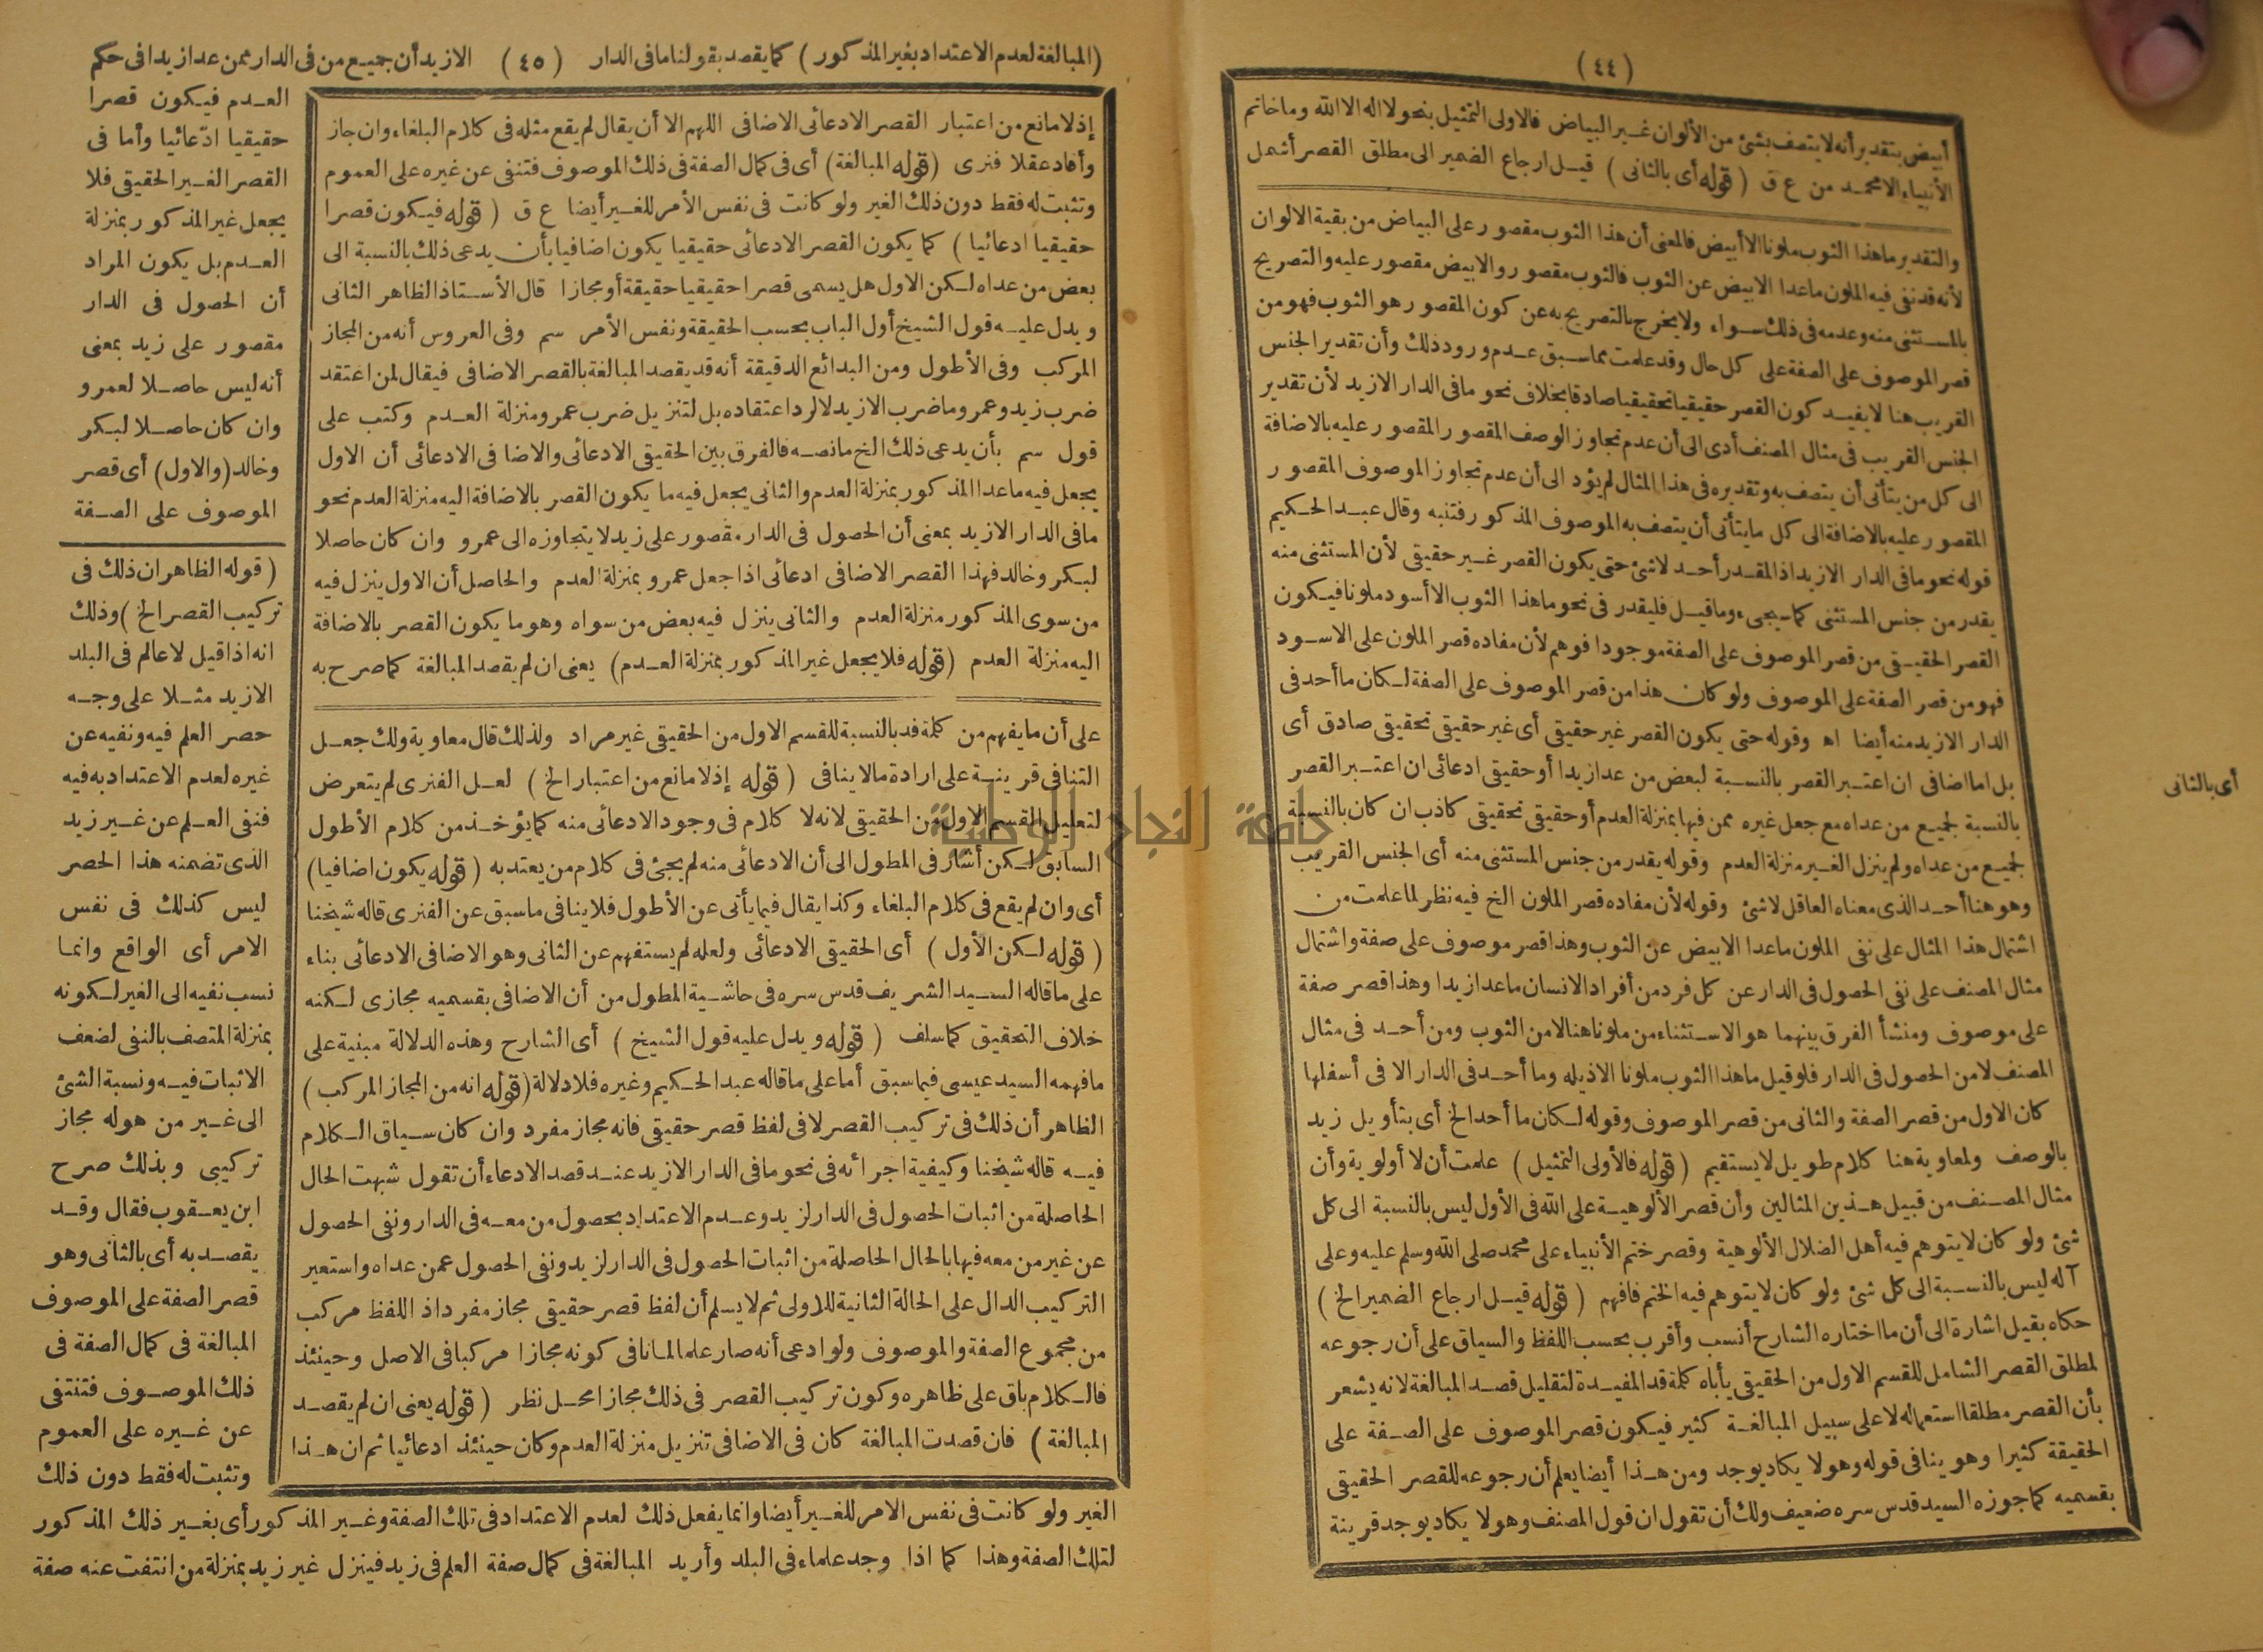 (٤٤)
أبيض بتقدير أنه لا يتصف بشئ من الألوان غير البياض فالاولى التمثيل بنحو لا اله الا الله وما خاتم
الأنبياء الا محمد من ع ق (قوله أى بالثانى) قيل ارجاع الضمير الى مطلق القصر أشمل
والتقدير ما هذا الثوب ملونا الا أبيض فالمعنى أن هذا الثوب مقصور على البياض من بقية الالوان
لأنه قد نفى فيه الملون ما عدا الابيض عن الثوب فالثوب مقصور والابيض مقصور عليه والتصريح
بالمستثنى منه وعدمه فى ذلك سواء ولا يخرج بالتصريح به عن كون المقصور هو الثوب فهو من
قصر الموصوف على الصفة على كل حال وقد علمت مما سبق عدم ورود ذلك وأن تقدير الجنس
القريب هنا لا يفيد كون القصر حقيقيا تحقيقيا صادقا بخلاف نحو ما فى الدار الا زيد لأن تقدير
الجنس القريب فى مثال المصنف أدى الى أن عدم تجاوز الوصف المقصور المقصور عليه بالاضافة
الى كل من يتأتى أن يتصف به وتقديره فى هذا المثال لم يؤد الى أن عدم تجاوز الموصوف المقصور
المقصور عليه بالاضافة الى كل ما يتأتى أن يتصف به الموصوف المذكور فتنبه وقال عبد الحكيم
قوله نحو ما فى الدار الا زيد اذ المقدر أحد لا شئ حتى يكون القصر غير حقيقى لأن المستثنى منه
يقدر من جنس المستثنى كما يجىء وما قيل فليقدر فى نحو ما هذا الثوب الا أسود ملونا فيكون
القصر الحقيقى من قصر الموصوف على الصفة موجودا فوهم لأن مفاده قصر الملون على الاسود
فهو من قصر الصفة على الموصوف ولو كان هذا من قصر الموصوف على الصفة لكان ما أحد فى
الدار الا زيد منه أيضا اه وقوله حتى يكون القصر غير حقيقى أى غير حقيقى تحقيقى صادق أى
بل اما اضافى ان اعتبر القصر بالنسبة لبعض من عدا زيدا أو حقيقى ادعائى ان اعتبر القصر
بالنسبة لجميع من عداه مع جعل غيره ممن فيها بمنزلة العدم أو حقيقى تحقيقى كاذب ان كان بالنسبة
لجميع من عداه ولم ينزل الغير منزلة العدم وقوله يقدر من جنس المستثنى منه أى الجنس القريب
وهو هنا أحد الذى معناه العاقل لا شئ وقوله لأن مفاده قصر الملون الخ فيه نظر لما علمت من
اشتمال هذا المثال على نفى الملون ما عدا الابيض عن الثوب وهذا قصر موصوف على صفة واشتمال
مثال المصنف على نفى الحصول فى الدار عن كل فرد من أفراد الانسان ما عدا زيدا وهذا قصر صفة
على موصوف ومنشأ الفرق بينهما هو الاستثناء من ملونا هنا لا من الثوب ومن أحد فى مثال
المصنف لا من الحصول فى الدار فلو قيل ما هذا الثوب ملونا الا ذيله وما أحد فى الدار الا فى أسفلها
كان الاول من قصر الصفة والثانى من قصر الموصوف وقوله لكان ما أحد الخ أى بتأويل زيد
بالوصف ولمعاوية هنا كلام طويل لا يستقيم (قوله فالأولى التمثيل) علمت أن لا أولوية وأن
مثال المصنف من قبيل هذين المثالين وأن قصر الألوهية على الله فى الأول ليس بالنسبة الى كل
شئ ولو كان لا يتوهم فيه أهل الضلال الألوهية وقصر ختم الأنبياء على محمد صلى الله وسلم عليه وعلى
آله ليس بالنسبة الى كل شئ ولو كان لا يتوهم فيه الختم فافهم (قوله قيل ارجاع الضمير الخ)
حكاه بقيل اشارة الى أن ما اختاره الشارح أنسب وأقرب بحسب اللفظ والسياق على أن رجوعه
لمطلق القصر الشامل للقسم الاول من الحقيقى يأباه كلمة قد المفيدة لتقليل قصد المبالغة لانه يشعر
بأن القصر مطلقا استعماله لا على سبيل المبالغة كثير فيكون قصر الموصوف على الصفة على
الحقيقة كثيرا وهو ينافى قوله وهو لا يكاد يوجد ومن هذا أيضا يعلم أن رجوعه للقصر الحقيقى
بقسميه كما جوزه السيد قدس سره ضعيف ولك أن تقول ان قول المصنف وهو لا يكاد يوجد قرينة
أى بالثانى
(المبالغة لعدم الاعتداد بغير المذكور) كما يقصد بقولنا ما فى الدار (٤٥) الا زيد أن جميع من فى الدار ممن عدا زيدا فى حكم
العدم فيكون قصرا
حقيقيا ادّعائيا وأما فى
القصر الغير الحقيقى فلا
يجعل غير المذكور بمنزلة
العدم بل يكون المراد
أن الحصول فى الدار
مقصور على زيد بمعنى
أنه ليس حاصلا لعمرو
وان كان حاصلا لبكر
وخالد (والاول) أى قصر
الموصوف على الصفة
إذ لا مانع من اعتبار القصر الادعائى الاضافى اللهم الا أن يقال لم يقع مثله فى كلام البلغاء وان جاز
وأفاد عقلا فنرى (قوله المبالغة) أى فى كمال الصفة فى ذلك الموصوف فتنفى عن غيره على العموم
وتثبت له فقط دون ذلك الغير ولو كانت فى نفس الأمر للغير أيضا ع ق (قوله فيكون قصرا
حقيقيا ادعائيا) كما يكون القصر الادعائى حقيقيا يكون اضافيا بأن يدعى ذلك بالنسبة الى
بعض من عداه لكن الاول هل يسمى قصرا حقيقيا حقيقة أو مجازا قال الأستاذ الظاهر الثانى
ويدل عليه قول الشيخ أول الباب بحسب الحقيقة ونفس الأمر سم وفى العروس أنه من المجاز
المركب وفى الأطول ومن البدائع الدقيقة أنه قد يقصد المبالغة بالقصر الاضافى فيقال لمن اعتقد
ضرب زيد وعمرو ما ضرب الا زيد لا لرد اعتقاده بل لتنزيل ضرب عمرو منزلة العدم وكتب على
قول سم بأن يدعى ذلك الخ ما نصه فالفرق بين الحقيقى الادعائى والاضافى الادعائى أن الاول
يجعل فيه ما عدا المذكور بمنزلة العدم والثانى يجعل فيه ما يكون القصر بالاضافة اليه منزلة العدم نحو
ما فى الدار الا زيد بمعنى أن الحصول فى الدار مقصور على زيد لا يتجاوزه الى عمرو وان كان حاصلا
لبكر وخالد فهذا القصر الاضافى ادعائى اذا جعل عمرو بمنزلة العدم والحاصل أن الاول ينزل فيه
من سوى المذكور منزلة العدم والثانى ينزل فيه بعض من سواه وهو ما يكون القصر بالاضافة
اليه منزلة العدم (قوله فلا يجعل غير المذكور بمنزلة العدم) يعنى ان لم يقصد المبالغة كما صرح به
على أن ما يفهم من كلمة قد بالنسبة للقسم الاول من الحقيقى غير مراد ولذلك قال معاوية ولك جعل
التنافى قرينة على ارادة ما لا ينافى (قوله إذ لا مانع من اعتبار الخ) لعل الفنرى لم يتعرض
لتعليل القسم الاول من الحقيقى لانه لا كلام فى وجود الادعائى منه كما يؤخذ من كلام الأطول
السابق لكن أشار فى المطول الى أن الادعائى منه لم يجئ فى كلام من يعتد به (قوله يكون اضافيا)
أى وان لم يقع فى كلام البلغاء وكذا يقال فيما يأتى عن الأطول فلا ينافى ما سبق عن الفنرى قاله شيخنا
(قوله لكن الأول) أى الحقيقى الادعائى ولعله لم يستفهم عن الثانى وهو الاضافى الادعائى بناء
على ما قاله السيد الشريف قدس سره فى حاشية المطول من أن الاضافى بقسميه مجازى لكنه
خلاف التحقيق كما سلف (قوله ويدل عليه قول الشيخ) أى الشارح وهذه الدلالة مبنية على
ما فهمه السيد عيسى فيما سبق أما على ما قاله عبد الحكيم وغيره فلا دلالة (قوله انه من المجاز المركب)
الظاهر أن ذلك فى تركيب القصر لا فى لفظ قصر حقيقى فانه مجاز مفرد وان كان سياق الكلام
فيه قاله شيخنا وكيفية اجرائه فى نحو ما فى الدار الا زيد عند قصد الادعاء أن تقول شبهت الحال
الحاصلة من اثبات الحصول فى الدار لزيد وعدم الاعتداد بحصول من معه فى الدار ونفى الحصول
عن غير من معه فيها بالحال الحاصلة من اثبات الحصول فى الدار لزيد ونفى الحصول عمن عداه واستعير
التركيب الدال على الحالة الثانية للاولى ثم لا يسلم أن لفظ قصر حقيقى مجاز مفرد اذ اللفظ مركب
من مجموع الصفة والموصوف ولو ادعى أنه صار علما لما نافى كونه مجازا مركبا فى الاصل وحينئذ
فالكلام باق على ظاهره وكون تركيب القصر فى ذلك مجازا محل نظر (قوله يعنى ان لم يقصد
المبالغة) فان قصدت المبالغة كان فى الاضافى تنزيل منزلة العدم وكان حينئذ ادعائيا ثم ان هذا
(قوله الظاهر ان ذلك فى
تركيب القصر الخ) وذلك
انه اذا قيل لا عالم فى البلد
الا زيد مثلا على وجه
حصر العلم فيه ونفيه عن
غيره لعدم الاعتداد به فيه
فنفى العلم عن غير زيد
الذى تضمنه هذا الحصر
ليس كذلك فى نفس
الامر أى الواقع وانما
نسب نفيه الى الغير لكونه
بمنزلة المتصف بالنفى لضعف
الاثبات فيه ونسبة الشئ
الى غير من هو له مجاز
تركيبى وبذلك صرح
ابن يعقوب فقال وقد
يقصد به أى بالثانى وهو
قصر الصفة على الموصوف
المبالغة فى كمال الصفة فى
ذلك الموصوف فتنتفى
عن غيره على العموم
وتثبت له فقط دون ذلك
الغير ولو كانت فى نفس الامر للغير أيضا وانما يفعل ذلك لعدم الاعتداد فى تلك الصفة وغير المذكور أى بغير ذلك المذكور
لتلك الصفة وهذا كما اذا وجد علماء فى البلد وأريد المبالغة فى كمال صفة العلم فى زيد فينزل غير زيد بمنزلة من انتفت عنه صفة
جامعة النجاح الوطنية